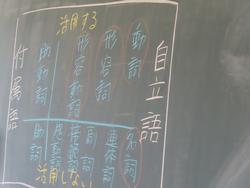 自立語
付属語
活用する
動詞
形容詞
形容動詞
助動詞
名詞
連体詞
副詞
接続詞
感動詞
助詞
活用しない